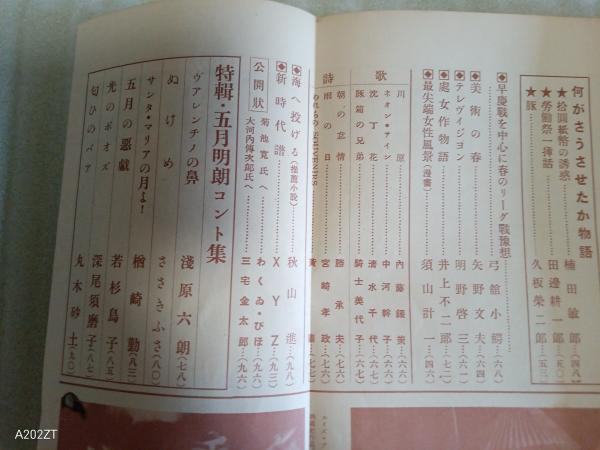 何がさうさせたか物語
★拾圓紙幣の誘惑………楠田敏郎…(四八)
★勞働祭一挿話………田邊耕一郎…(五〇)
★豚………久板榮二郎…(五三)
◆早慶戰を中心に春のリーグ戰豫想…弓舘小鰐…(六八)
◆美術の春………矢野文夫…(六四)
◆テレヴィジョン………明野啓三…(六一)
◆處女作物語………井上不二郎…(六五)
◆最尖端女性風景(漫畫)………須山計一…(四六)
歌
川原………內藤鋠策…(六六)
ネオン・サイン………中河幹子…(六六)
沈丁花………淸水千代…(六七)
豚箱の兄弟………騎士美代子…(六七)
詩
朝の怠惰………勝承夫…(七六)
雨の日………宮崎孝政…(七六)
われらの SOUVENIRS
◆海へ投げる(推薦小說)………秋山進…(九八)
◆新時代譜………XYZ…(九三)
公開狀
菊池寬氏へ………わくゐ・びほ…(九六)
大河內傳次郎氏へ………三宅金太郎…(九六)
特輯・五月明朗コント集
ヴァレンチノの鼻………淺原六朗…(七八)
ぬけめ………ささきふさ…(八〇)
サンタ・マリアの月よ!………楢崎勤…(八三)
五月の惡戱………若杉鳥子…(八五)
光のポオズ………深尾須磨子…(八七)
匂ひのペア………丸木砂土…(九〇)
A202ZT